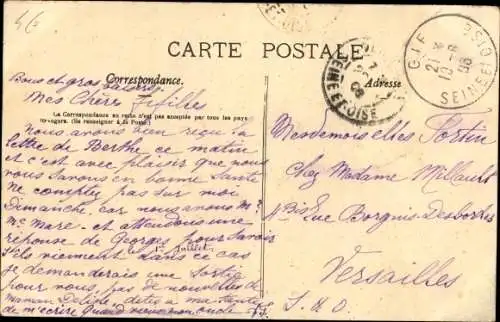 CARTE POSTALE
Correspondance.
Adresse
Bons et gros baisers
Mes Chères Fifilles
La Correspondance au recto n'est pas acceptée par tous les pays
(Se renseigner à la Poste)
Nous avons bien reçu la
lettre de Berthe ce matin
et c'est avec plaisir que nous
vous savons en bonne Santé
Ne comptez pas sur moi
Dimanche, car nous avons Mr
Mme Mare et attendons une
réponse de Georges pour Savoir
1er juillet
S'ils viennent dans ce cas
je demanderais une Sortie
pour vous, pas de nouvelles de
Maman
de m'écrire Quand oncle
Mesdemoiselles Sortin
Chez Madame Millault
4 Bis Rue Borgnis Desbordes
Versailles
S. & O.
GIF
SEINE ET OISE
21
08
SEINE ET OISE